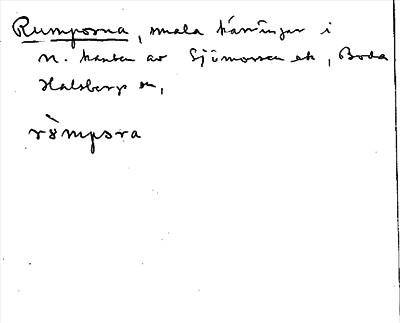 Rumporna, smala kärringar i
n. kanten av Sjömossen ek, Boda
Halsbergs sn,
römpora